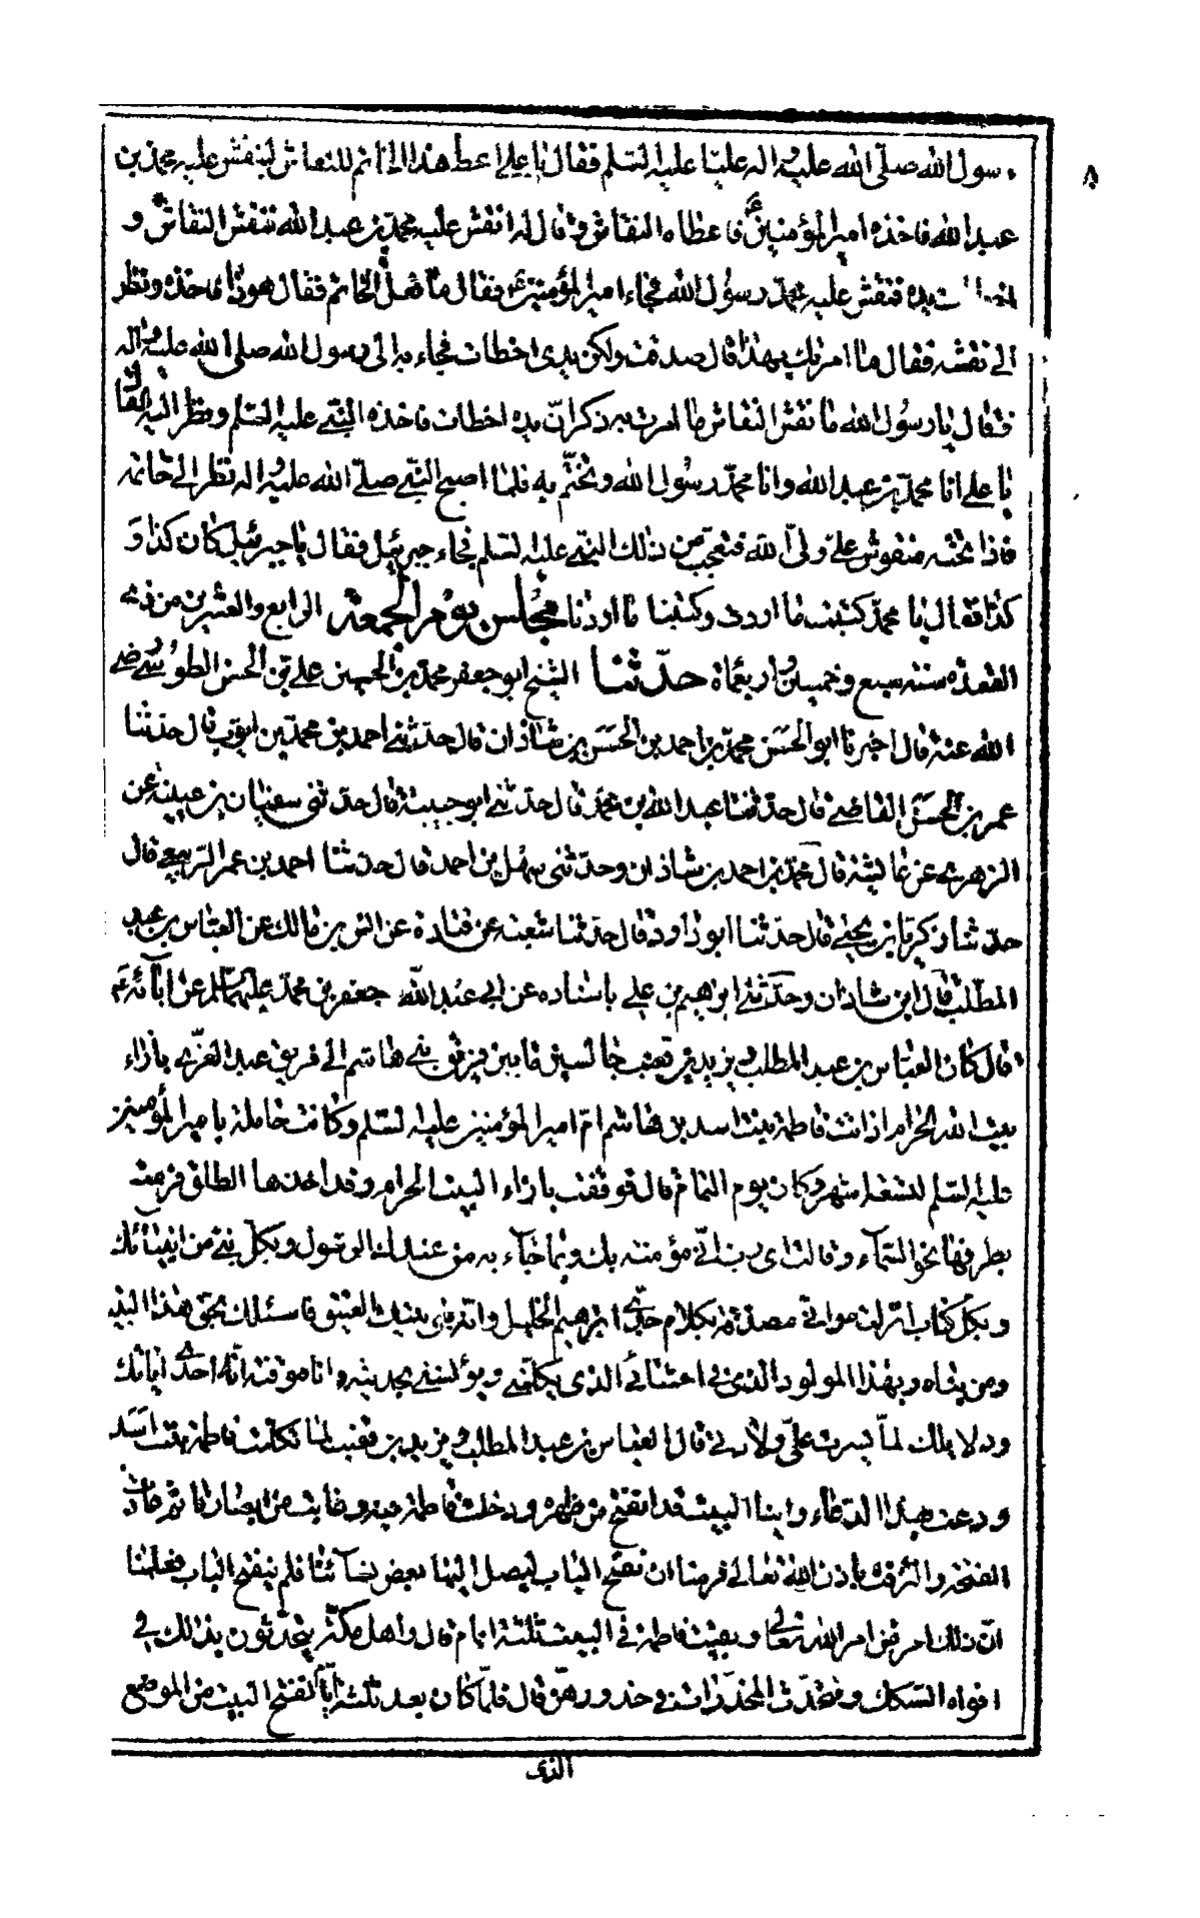 رسول الله صلّى الله عليه واله عليّا عليه السّلم فقال يا علي اعط هذا الخاتم للنقاش لينقش عليه محمد بن
عبد الله فاخذه امير المؤمنين ع فاعطاه النقاش وقال له انقش عليه محمد بن عبد الله فنقش النقاش و
اخطات يده فنقش عليه محمّد رسول الله فجاء امير المؤمنين ع فقال ما فعل الخاتم فقال هو ذا فاخذه ونظر
الى نقشه فقال ما امرتك بهذا قال صدقت ولكن يدى اخطات فجاء به الى رسول الله صلى الله عليه واله
فقال يا رسول الله ما نقش النقاش ما امرت به ذكر انّ يده اخطات فاخذه النبي عليه السّلم ونظر اليه فقال
يا علي انا محمد بن عبد الله وانا محمّد رسول الله وتختّم به فلمّا اصبح النبي صلّى الله عليه واله نظر الى خاتمه
فاذا تحته منقوش علي ولىّ الله فتعجب من ذلك النبي عليه السّلم فجاء جبرئيل فقال يا جبرئيل كان كذا و
كذا فقال يا محمّد كتبت ما اردت وكتبنا ما اردنا مجلس يوم الجمعة الرابع والعشرين من ذي
القعدة سنة سبع وخمسين واربعماة حدّثنا الشيخ ابو جعفر محمد بن الحسن بن علي بن الحسن الطوسي رضي
الله عنه قال اخبرنا ابو الحسن محمد بن احمد بن الحسن بن شاذان قال حدثني احمد بن محمد بن ايوب قال حدثنا
عمر بن الحسن القاضي قال حدثنا عبد الله بن محمد قال حدثني ابو حبيبة قال حدثنى سفيان بن عيينة عن
الزهري عن عائشة قال محمد بن احمد بن شاذان وحدّثنى سهل بن احمد قال حدثنا احمد بن عمر الربيعي قال
حدثنا زكريا بن يحيى قال حدثنا ابو داود قال حدثنا شعبة عن قتادة عن انس بن مالك عن العباس بن عبد
المطلب قال ابن شاذان وحدّثني ابرهيم بن علي باسناده عن ابي عبد الله جعفر بن محمد عليهما السلم عن ابائه ع
قال كان العباس بن عبد المطلب ويزيد بن قعنب جالسين ما بين فريق بني هاشم الى فريق عبد العزى بازاء
بيت الله الحرام اذ اتت فاطمة بنت اسد بن هاشم امّ امير المؤمنين عليه السّلم وكانت حاملة بامير المؤمنين
عليه السّلم لتسعة اشهر وكان يوم التمام قال فوقفت بازاء البيت الحرام وقد اخذها الطلق فرمت
بطرفها نحو السّماء وقالت اى رب انّي مؤمنة بك وبما جاء به من عندك الرسول وبكلّ نبي من انبيائك
وبكل كتاب انزلته واني مصدّقة بكلام جدّي ابرهيم الخليل وانه بنى بيتك العتيق فاسئلك بحق هذا البيت
ومن بناه وبهذا المولود الذى في احشائي الذى يكلّمني ويؤنسني بحديثه وانا موقنة انّه احدى اياتك
ودلايلك لمّا يسرت علىّ ولادتي قال العباس بن عبد المطلب ويزيد بن قعنب لمّا تكلّمت فاطمة بنت اسد
ودعت بهذا الدعاء راينا البيت قد انفتح من ظهره ودخلت فاطمة فيه وغابت عن ابصارنا ثم عادت
الفتحة والتزقت باذن الله تعالى فرمنا ان نفتح الباب ليصل اليها بعض نسائنا فلم ينفتح الباب فعلمنا
انّ ذلك امر من امر الله تعالى وبقيت فاطمة في البيت ثلثة ايام قال واهل مكّة يتحدّثون بذلك في
افواه السّكك وتتحدّث المخدّرات في خدورهنّ قال فلمّا كان بعد ثلثة ايّام انفتح البيت من الموضع
الذى